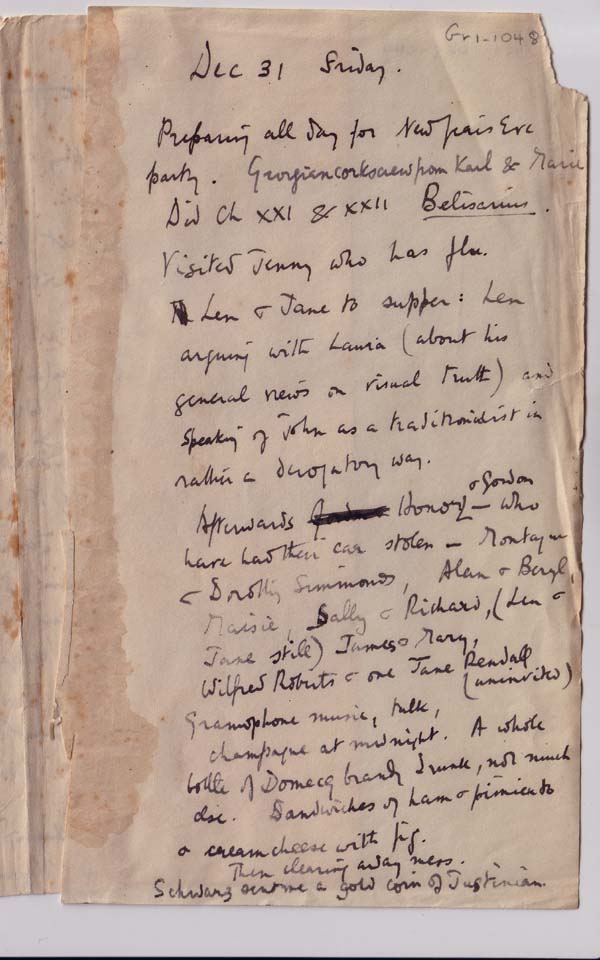 Gr1-1048
Dec 31 Friday.
Preparing all day for New Years Eve
party. Georgian corkscrew from Karl & Marie
Did Ch XXI & XXII Belisarius.
Visited Jenny who has flu.
Len & Jane to supper: Len
arguing with Laura (about his
general views on visual truth) and
speaking of John as a traditionalist in
rather a derogatory way.
& Gordon
Afterwards Honor – who
have had their car stolen – Montague
& Dorothy Simmonds, Alan & Beryl,
Maisie, Sally & Richard, (Len &
Jane still) James & Mary,
Wilfred Roberts & one Jane Rendall
(uninvited)
Gramophone music, talk,
champagne at midnight. A whole
bottle of Domecq brandy drunk, not much
else. Sandwiches of ham & pimiento
& cream cheese with fig.
Then clearing away mess.
Schwarz sent me a gold coin of Justinian.